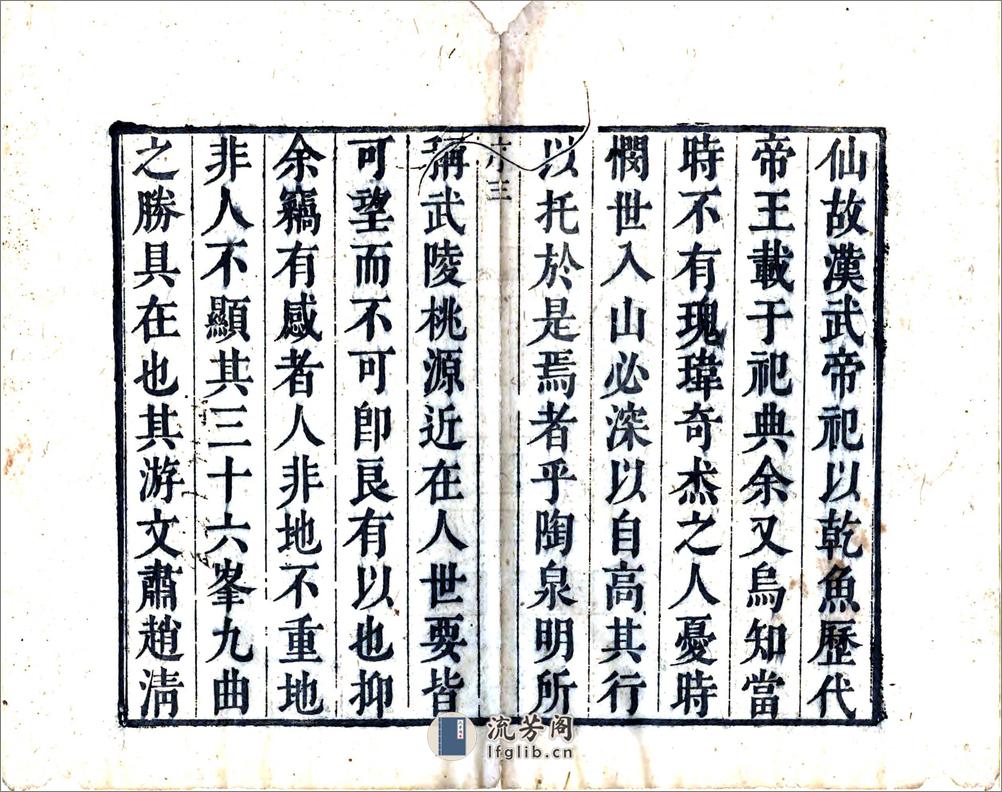 仙故漢武帝祀以乾魚歷代
帝王載于祀典余又烏知當
時不有瑰瑋奇杰之人憂時
憫世入山必深以自高其行
以托於是焉者乎陶泉明所
序三
稱武陵桃源近在人世要皆
可望而不可卽良有以也抑
余竊有感者人非地不重地
非人不顯其三十六峯九曲
之勝具在也其游文肅趙淸
流芳阁
lfglib.cn